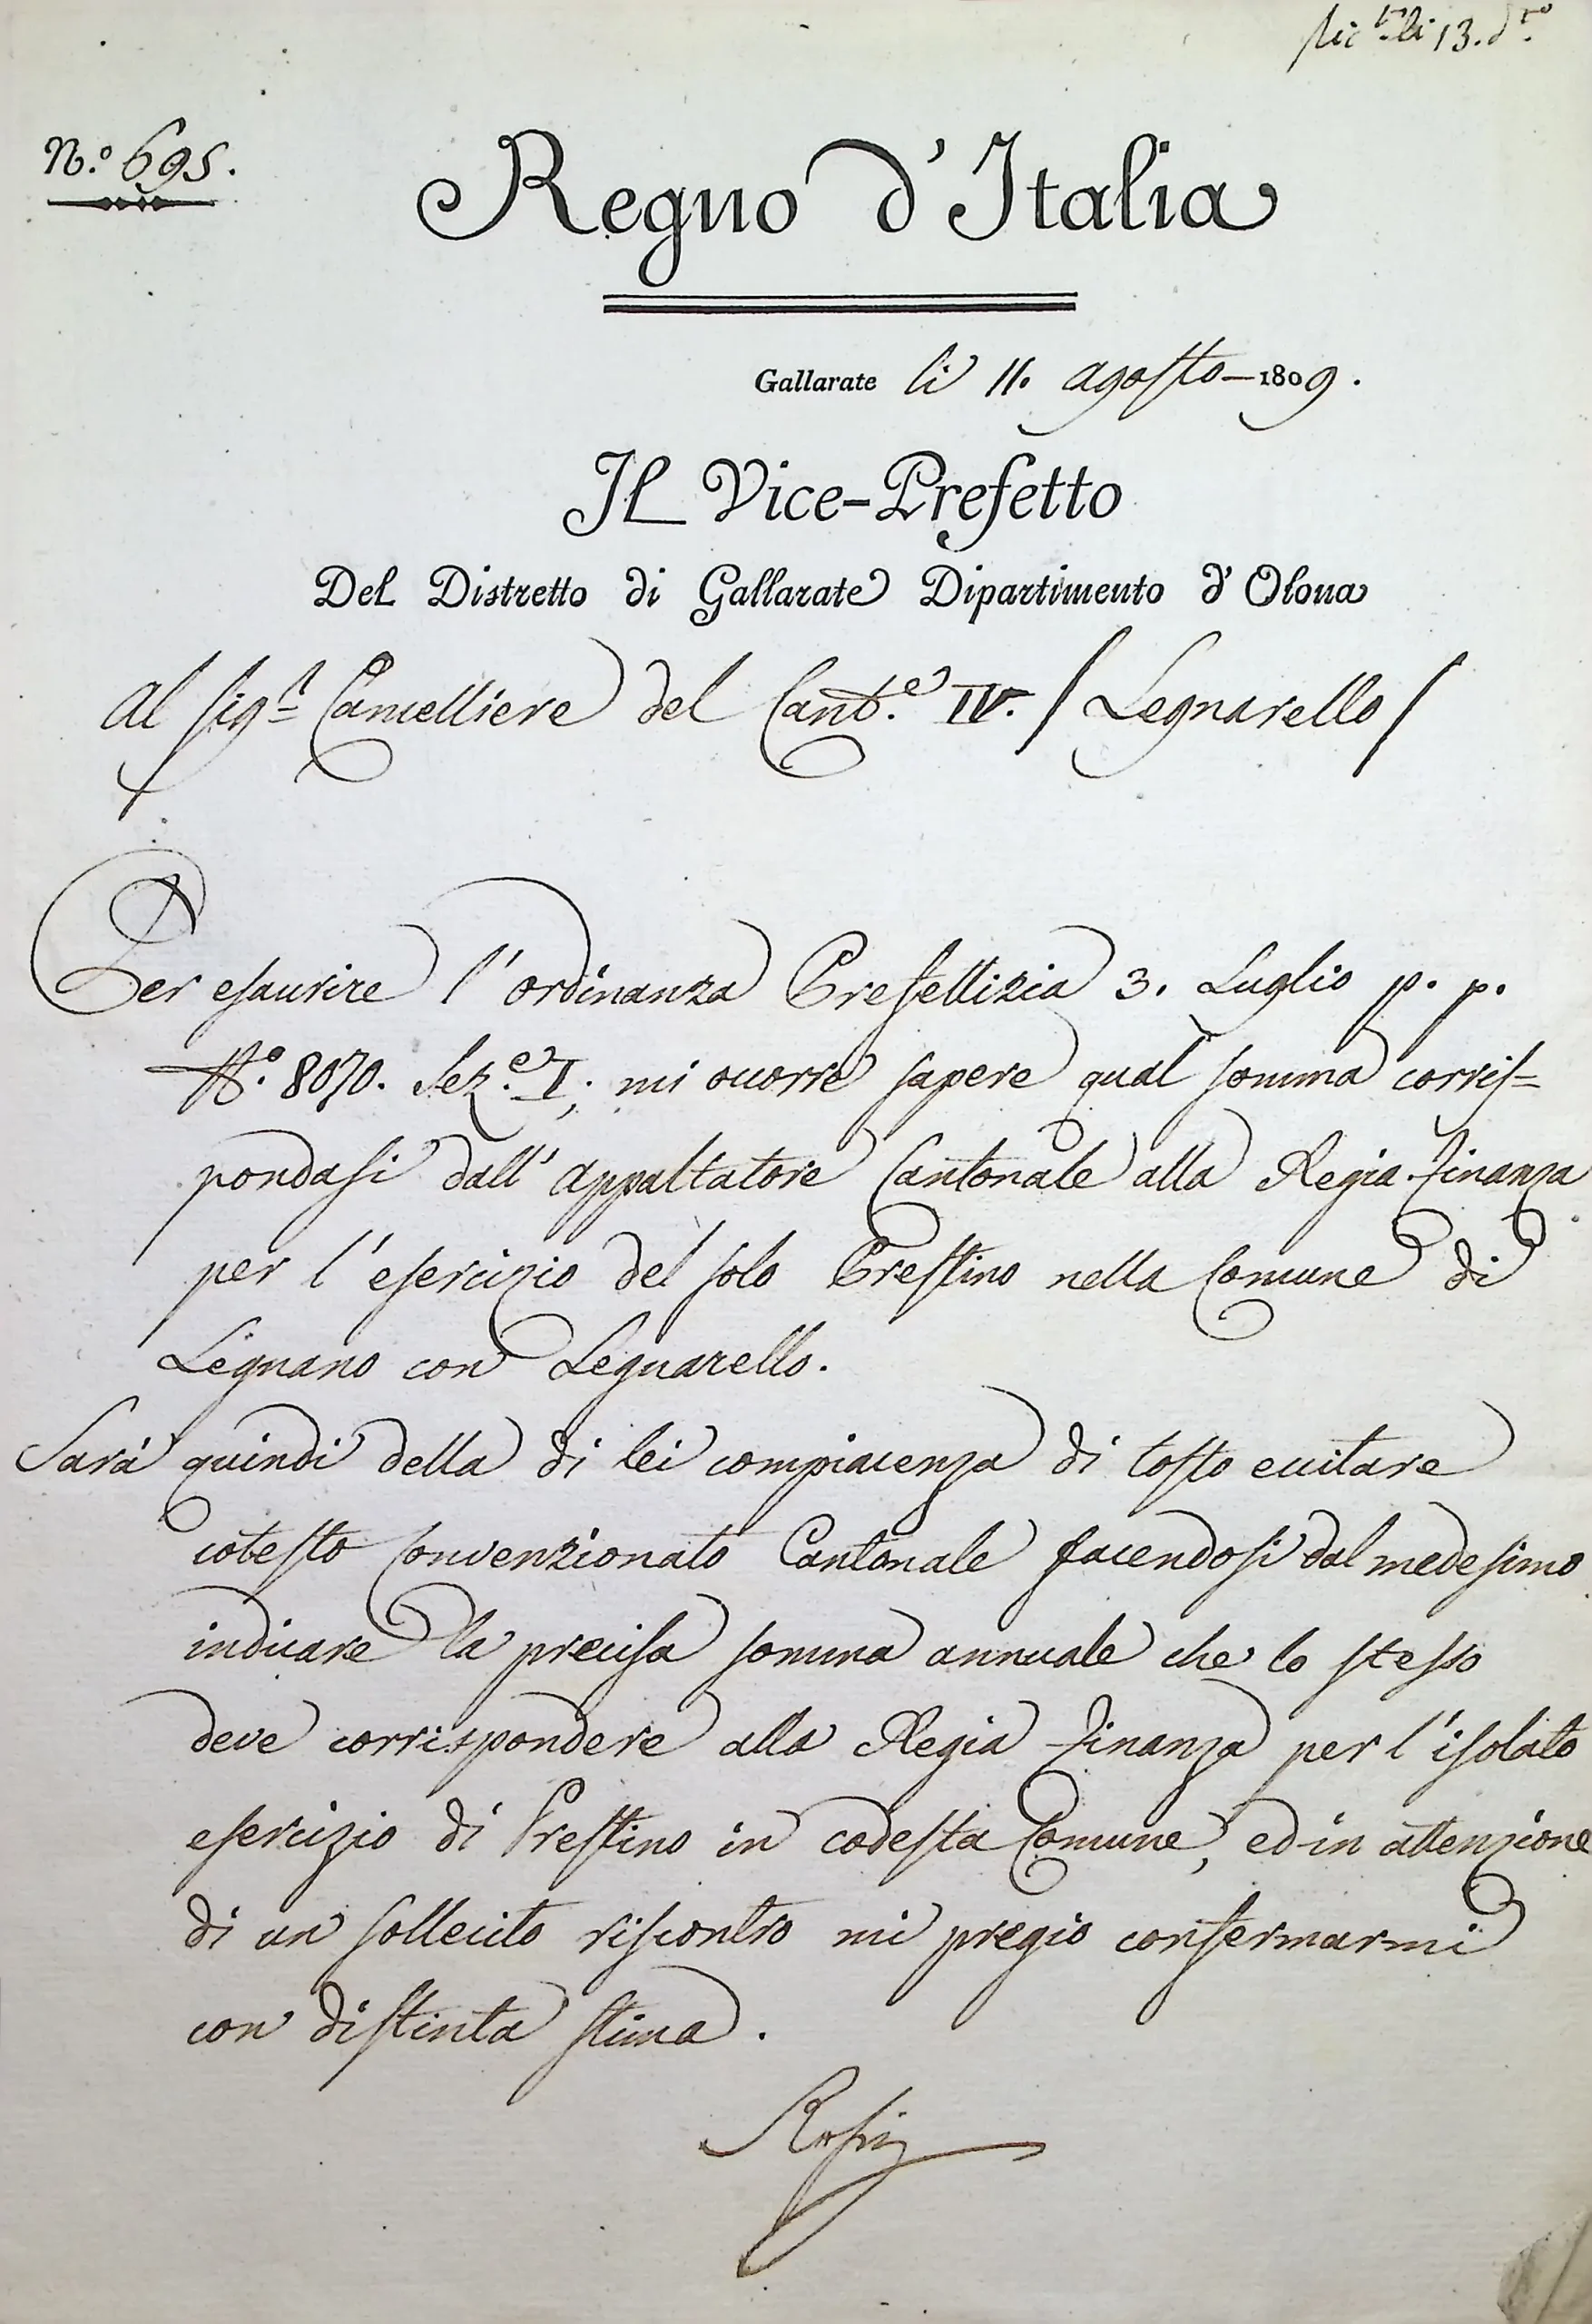 li 13. d.to
N.o 695.
Regno d'Italia
Gallarate li 11. agosto – 1809.
Il Vice-Prefetto
Del Distretto di Gallarate Dipartimento d'Olona
Al Sig.r Cancelliere del Cant.e IV. / Legnarello /
Per esaurire l'ordinanza Prefettizia 3. Luglio p. p.
N.o 8070. Sez.e I; mi occorre sapere qual somma corris=
pondasi dall'appaltatore Cantonale alla Regia Finanza
per l'esercizio del solo Prestino nella Comune di
Legnano con Legnarello.
Sarà quindi della di lei compiacenza di tosto eccitare
cotesto Convenzionato Cantonale facendosi dal medesimo
indicare la precisa somma annuale che lo stesso
deve corrispondere alla Regia Finanza per l'isolato
esercizio di Prestino in codesta Comune, ed in attenzione
di un sollecito riscontro mi pregio confermarmi
con distinta stima.